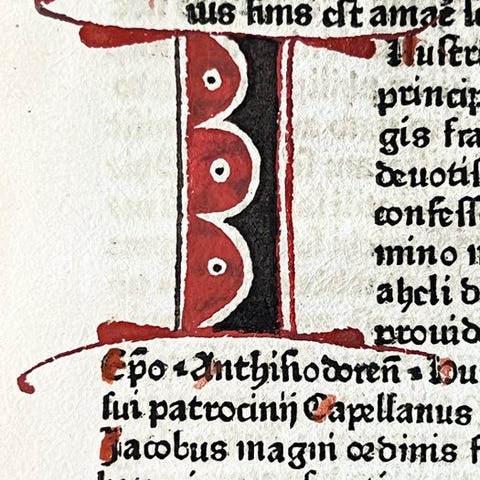 ius finis est amaē
Illustr
princip
gis fra
deuotiſ
confeſſ
mino
ahcli d
prouid
Ep̄o · Anthiſiodoren̄ ·
ſui patrocinij Capellanus
Jacobus magni ordinis f